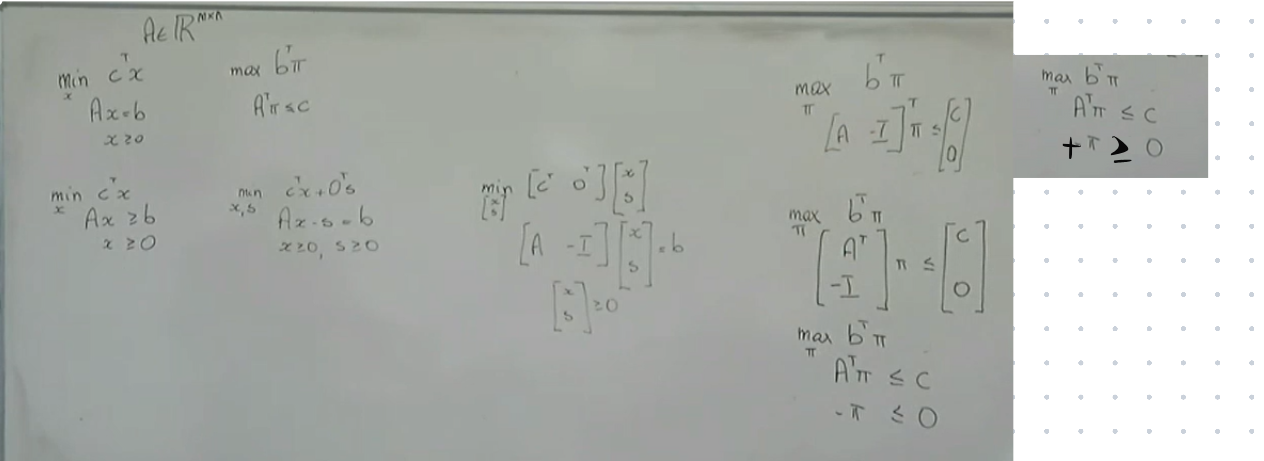 A∈ℝ^{m×n}
min_x c^T x
Ax=b
x≥0
max b^T π
A^T π ≤ c
min_x c^T x
Ax ≥ b
x ≥ 0
min_{x,s} c^T x + 0^T s
Ax - s = b
x≥0, s≥0
min_{[x s]} [c^T 0^T] [x s]
[A -I] [x s] = b
[x s] ≥ 0
max_π b^T π
[A -I]^T π ≤ [c 0]
max_π b^T π
[A^T -I] π ≤ [c 0]
max_π b^T π
A^T π ≤ c
-π ≤ 0
max_π b^T π
A^T π ≤ c
+π ≥ 0